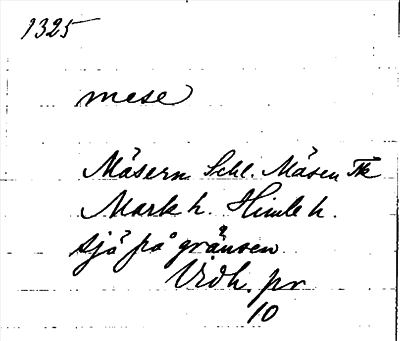 1325
mese
Mäsern Schl. Mäsen Tk
Mark h. Himle h.
sjö på gränsen
Vidh. pr
10